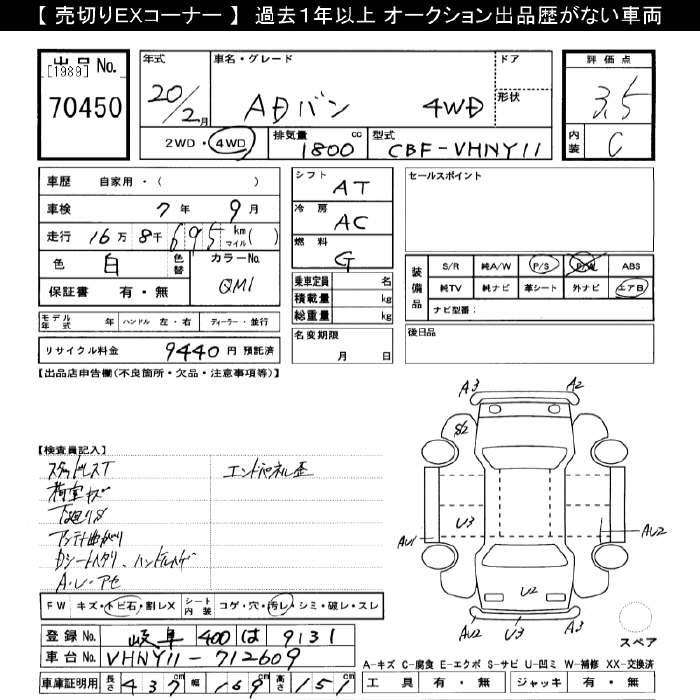 【 売切りEXコーナー 】 過去1年以上 オークション出品歴がない車両
出品 No.
[1989]
70450
年式
20/2月
車名・グレード
ADバン 4WD
ドア
形状
2WD・4WD
排気量 1800 cc
型式 CBF-VHNY11
評価点
3.5
内装 C
車歴 自家用・( )
車検 7年 9月
走行 16万 8千 695 km マイル( )
色 白 色替
カラーNo. QM1
保証書 有・無
モデル年式 年 ハンドル 左・右 ディーラー・並行
リサイクル料金 9440 円 預託済
シフト AT
冷房 AC
燃料 G
乗車定員 名
積載量 kg
総重量 kg
名変期限
月 日
セールスポイント
装備品
S/R 純A/W P/S P/W ABS
純TV 純ナビ 革シート 外ナビ エアB
ナビ型番:
後日品
【出品店申告欄(不良箇所・欠品・注意事項等)】
【検査員記入】
スタッドレスT
荷室キズ
下廻りS
アンテナ曲がり
Dシートヘタリ、ハンドルハゲ
A・U・アセ
エンドパネル歪
A3 A2
S2
U3
AU1
AU2
U2
AU2 U3 A3
スペア
FW キズ・トビ石・割レX
シート内装 コゲ・穴・汚レ・シミ・破レ・スレ
登録No. 岐阜 400 は 9131
車台No. VHNY11-712609
車庫証明用 長さ 437 幅 169 高さ 151
A-キズ C-腐食 E-エクボ S-サビ U-凹ミ W-補修 XX-交換済
工具 有・無 ジャッキ 有・無